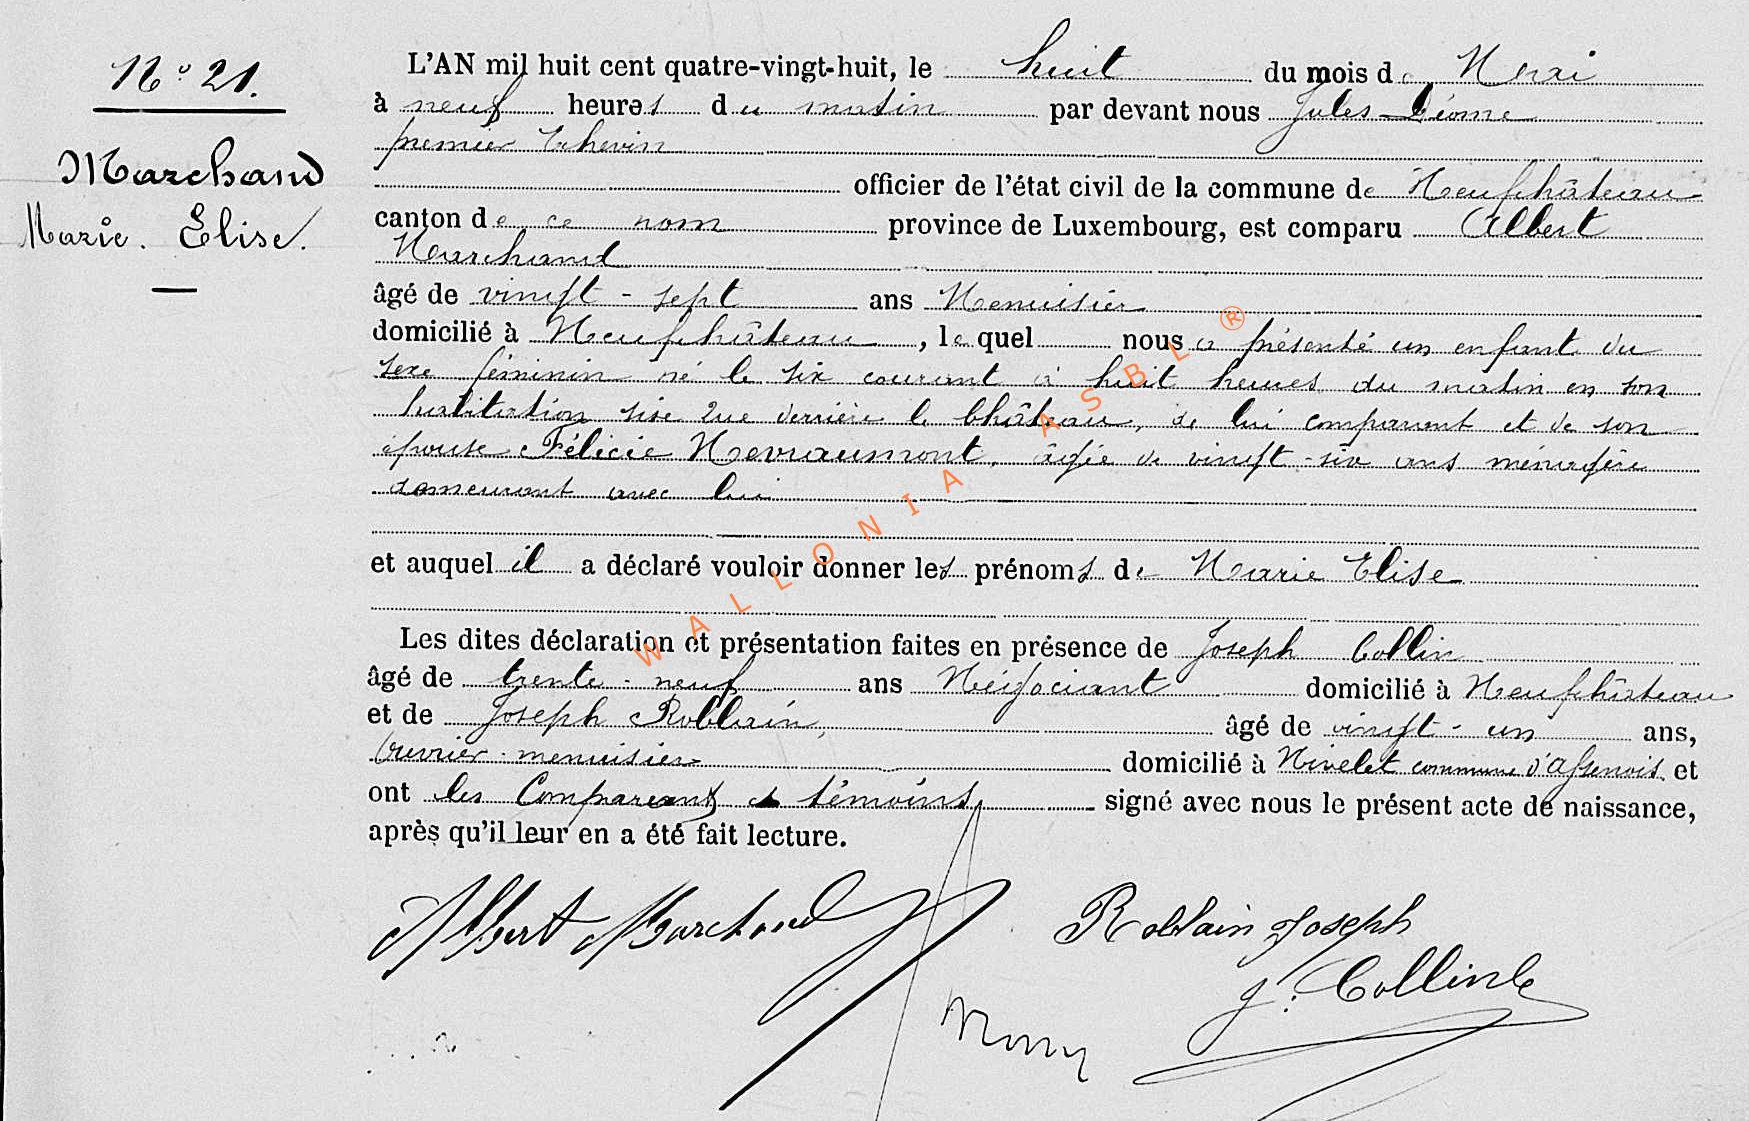 N° 21.
Marchand
Marie. Elise.
L'AN mil huit cent quatre-vingt-huit, le huit du mois de Mai
à neuf heures du matin par devant nous Jules Déome
premier Echevin
officier de l'état civil de la commune de Neufchâteau
canton de ce nom province de Luxembourg, est comparu Albert
Marchand
âgé de vingt-sept ans Menuisier
domicilié à Neufchâteau, lequel nous a présenté un enfant du
sexe féminin né le six courant à huit heures du matin en son
habitation sise Rue derrière le Château, de lui comparant et de son
épouse Félicie Nevraumont, âgée de vingt-six ans ménagère
demeurant avec lui
et auquel il a déclaré vouloir donner les prénoms de Marie Elise
Les dites déclaration et présentation faites en présence de Joseph Collin
âgé de trente-neuf ans Négociant domicilié à Neufchâteau
et de Joseph Roblain, âgé de vingt-un ans,
Ouvrier-menuisier domicilié à Nivelet commune d'Assenois et
ont les Comparant et témoins signé avec nous le présent acte de naissance,
après qu'il leur en a été fait lecture.
Albert Marchand
Roblain Joseph
J. Collin
WALLONIA ASBL ®